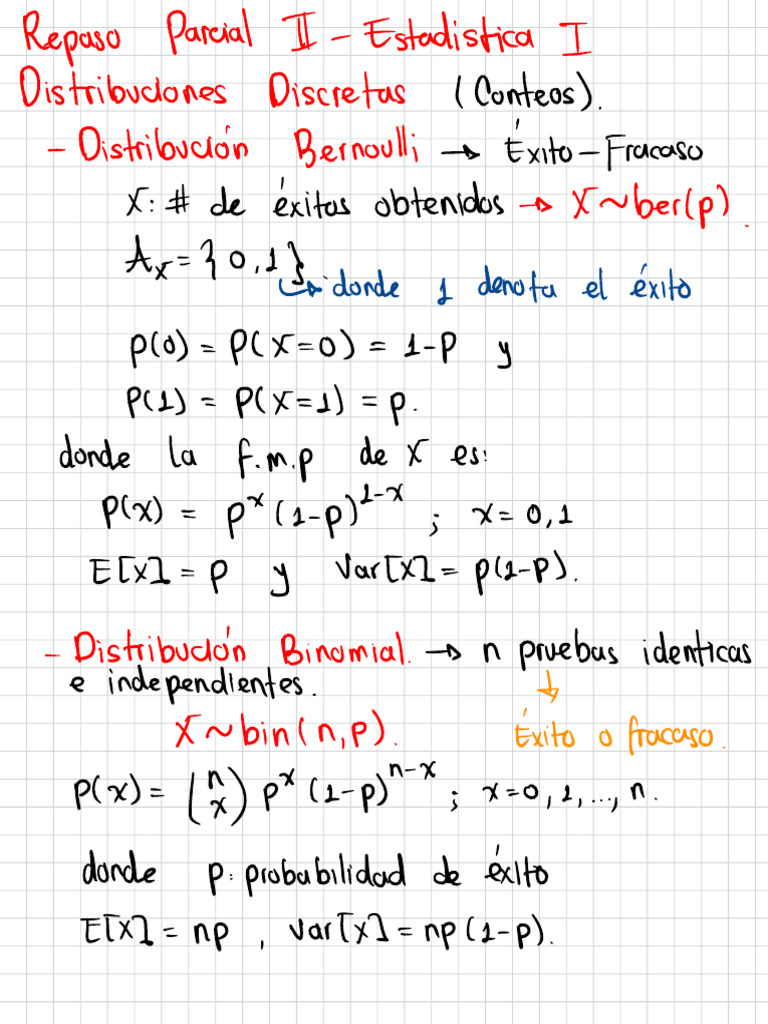 Repaso Parcial II - Estadistica I
Distribuciones Discretas (Conteos).
- Distribución Bernoulli → Éxito - Fracaso
X: # de éxitos obtenidos → X ~ ber(p).
A_x = {0,1}
↳ donde 1 denota el éxito
p(0) = P(X=0) = 1-p y
P(1) = P(X=1) = p.
donde la f.m.p de X es:
P(x) = p^x (1-p)^{1-x} ; x = 0,1
E[X] = p y Var[X] = p(1-p).
- Distribución Binomial. → n pruebas identicas
e independientes. ↓
X ~ bin(n,p). Éxito o fracaso.
P(x) = (n x) p^x (1-p)^{n-x} ; x=0,1,...,n.
donde p: probabilidad de éxito
E[X] = np , Var[X] = np(1-p).